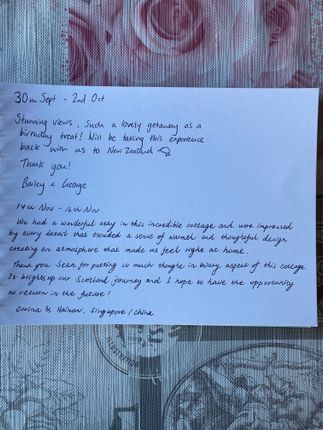 30th Sept - 2nd Oct
Stunning views, such a lovely getaway as a
birthday treat! Will be taking this experience
back with us to New Zealand
Thank you!
Bailey & George
14th Nov - 16th Nov
We had a wonderful stay in this incredible cottage and were impressed
by every detail that exuded a sense of warmth and thoughtful design
creating an atmosphere that made us feel right at home.
Thank you Sean for putting so much thought in every aspect of this cottage
It brightens up our Scotland journey and I hope to have the opportunity
to return in the future!
Hainan, Singapore / China